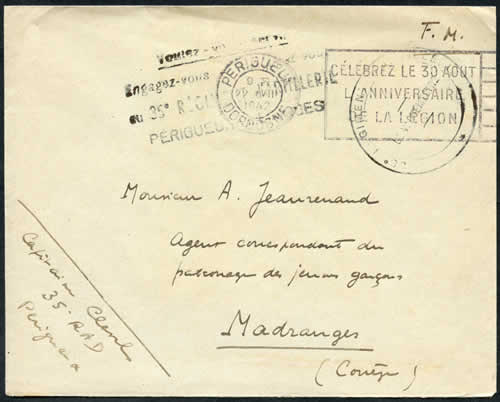 F. M.
Engagez-vous
au 35e
PÉRIGUEUX
PÉRIGUEUX
DORDOGNE
CÉLÉBREZ LE 30 AOUT
L'ANNIVERSAIRE
LA LÉGION
Monsieur A. Jeaurenaud
Agent correspondant du
patronage des jeunes garçons
Madranges
(Corrèze)
Capitaine
35e RAD
Périgueux